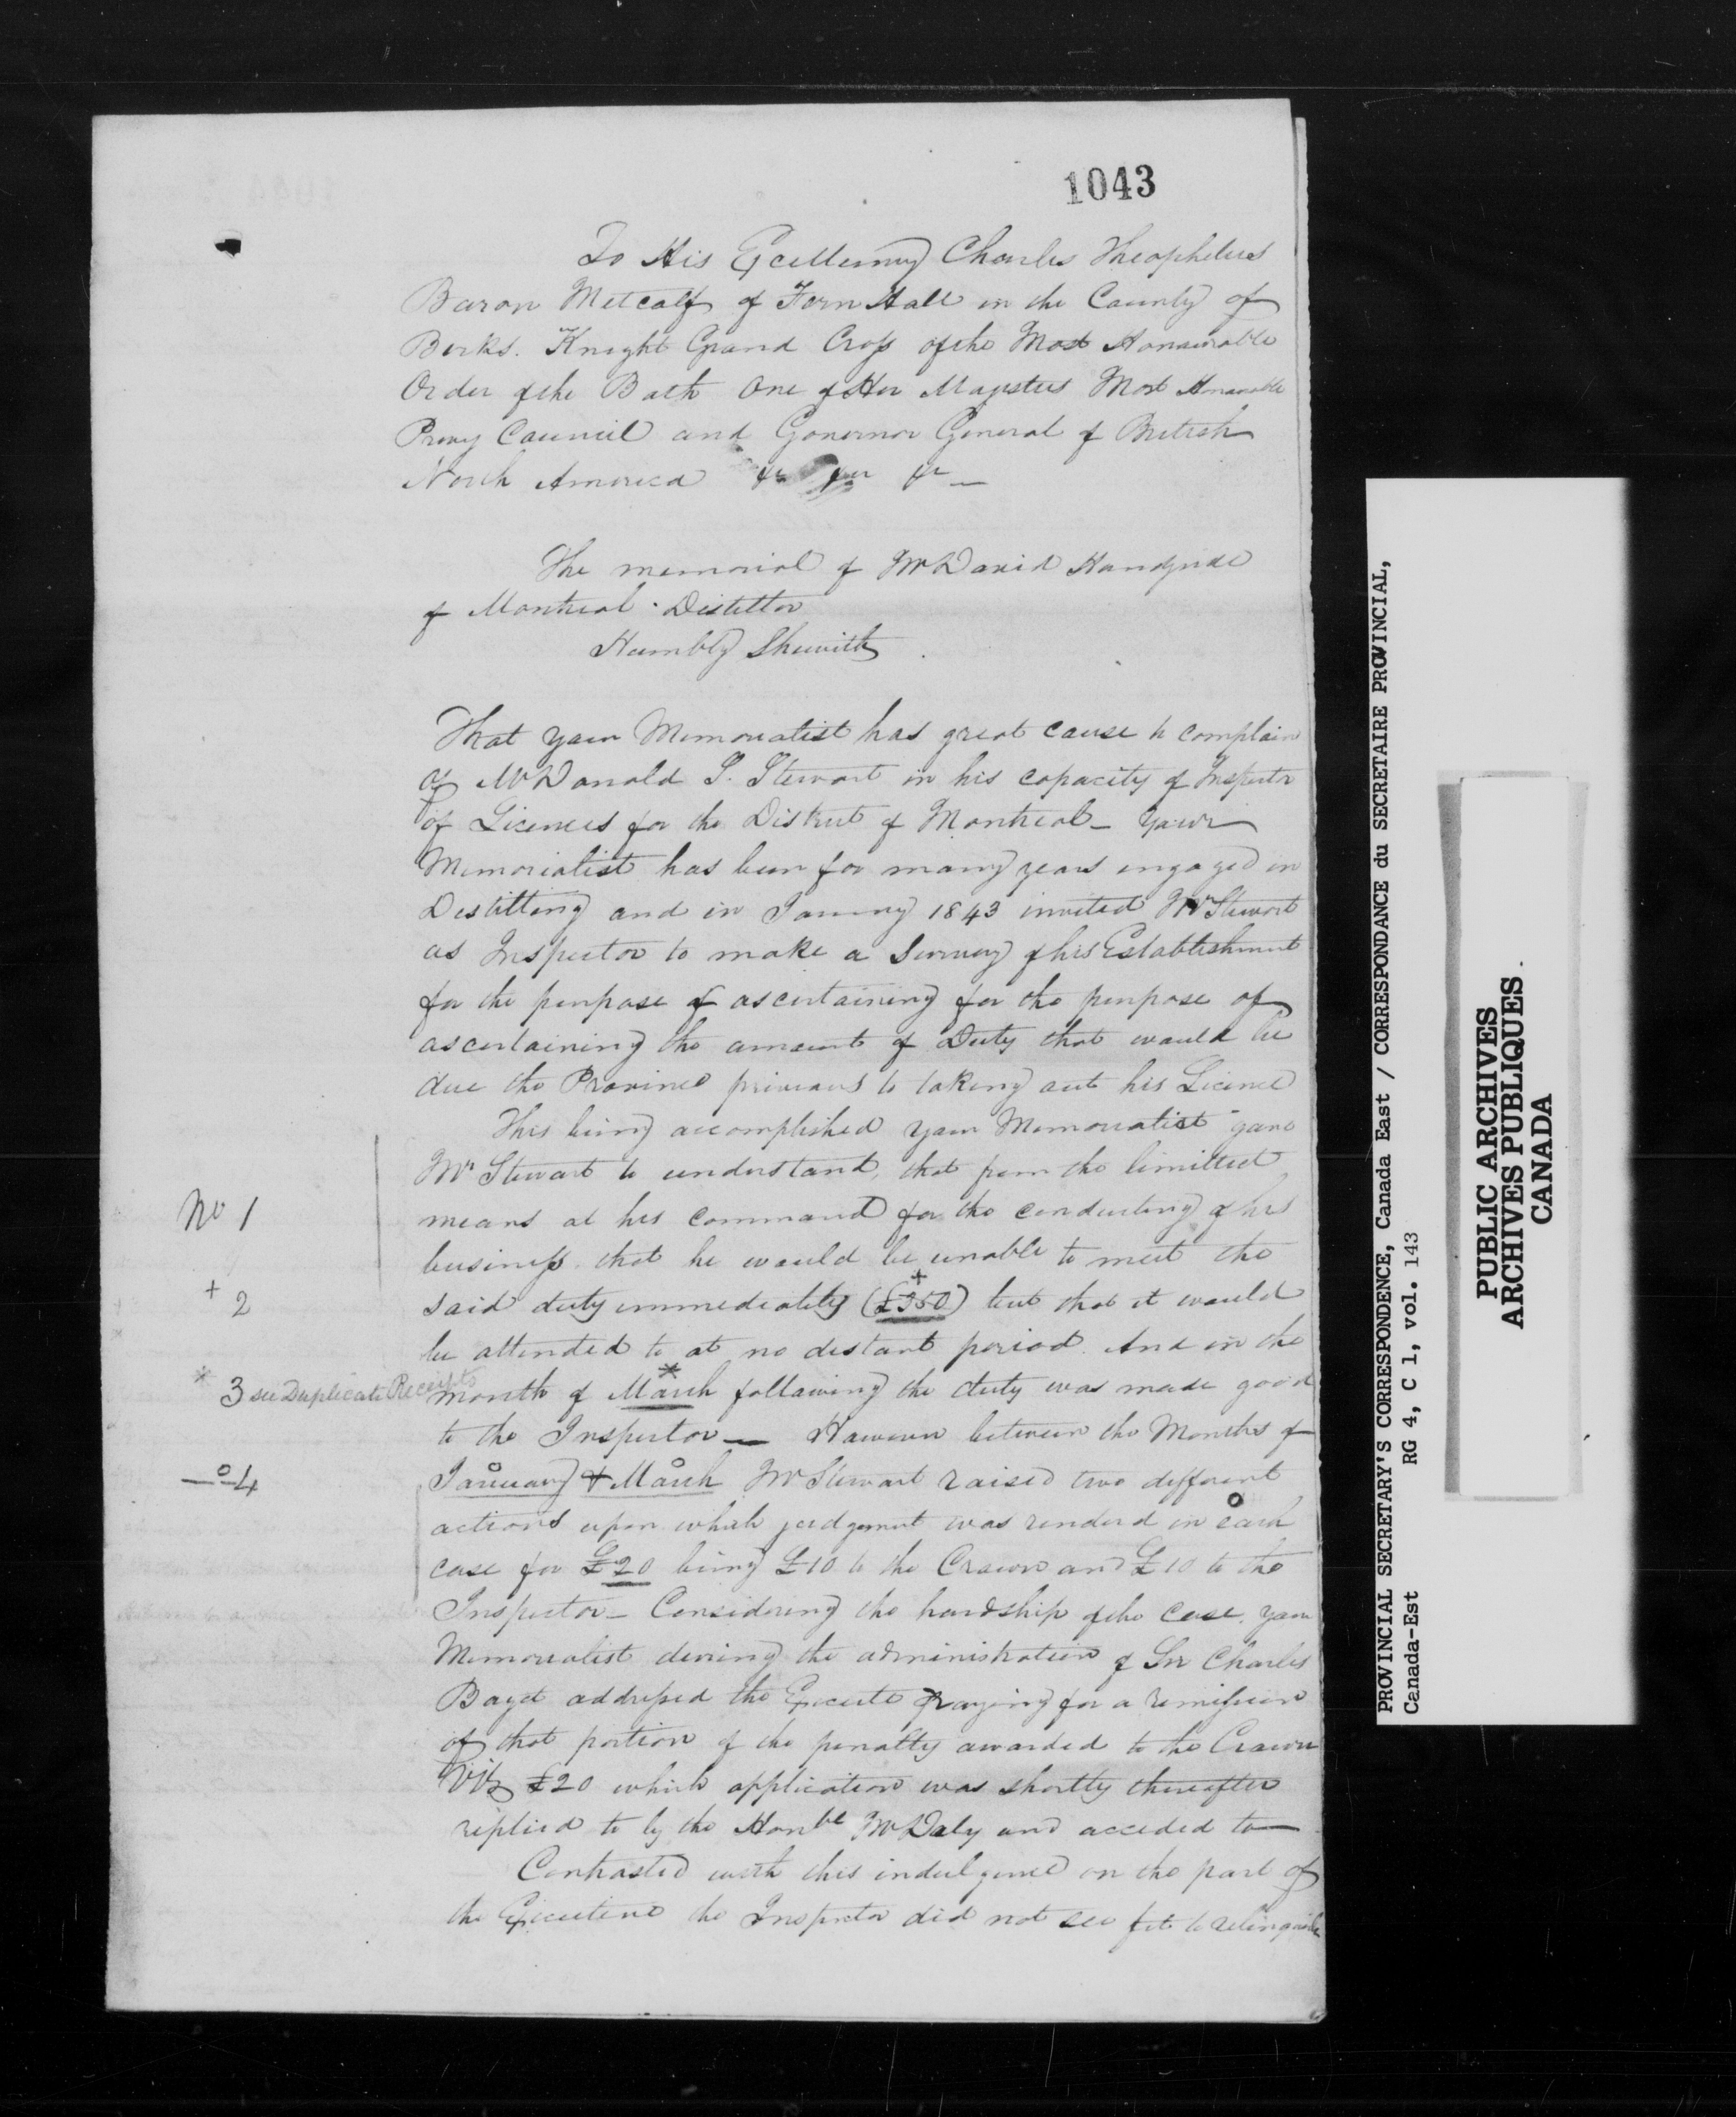 1043
To His Excellency Charles Theophelus
Baron Metcalf of Fern Hall in the County of
Berks. Knight Grand Cross of the Most Honourable
Order of the Bath One of Her Majesties Most Honourable
Privy Council and Governor General of British
North America &c &c &c _
The memorial of Mr David Handyside
of Montreal Distiller
Humbly Sheweth
That your Memorialist has great cause to complain
of Mr Donald S. Stewart in his capacity of Inspector
of Licences for the District of Montreal_ Your
Memorialist has been for many years engaged in
Distilling and in January 1843 invited Mr Stewart
as Inspector to make a Survey of his Establishment
for the purpose of ascertaining for the purpose of
ascertaining the amount of Duty that would be
due the Province previous to taking out his Licence
This being accomplished your Memorialist gave
Mr Stewart to understand, that from the limitted
No 1
means at his command for the conducting of his
business that he would be unable to meet the
+ 2
said duty immediately (£350) +  but that it would
be attended to at no distant period. And in the
* 3 see Duplicate Receipts
month of March * following the duty was made good
to the Inspector _ However between the Months of
_o 4
January & March Mr Stewart raised two different
actions upon which judgement was renderd in each
case for £20 being £10 to the Crown and £10 to the
Inspector_ Considering the hardship of the case your
Memorialist during the administration of Sir Charles
Bagot addressed the Execute praying for a remission
of that portion of the penalty awarded to the Crown
Viz £20 which application was shortly thereafter
replied to by the Honble Mr Daly and acceded to_
Contrasted with this indulgence on the part of
the Executive the Inspector did not see fit to relinquish
PROVINCIAL SECRETARY'S CORRESPONDENCE, Canada East / CORRESPONDANCE du SECRETAIRE PROVINCIAL,
Canada-Est RG 4, C 1, vol. 143
PUBLIC ARCHIVES
ARCHIVES PUBLIQUES
CANADA